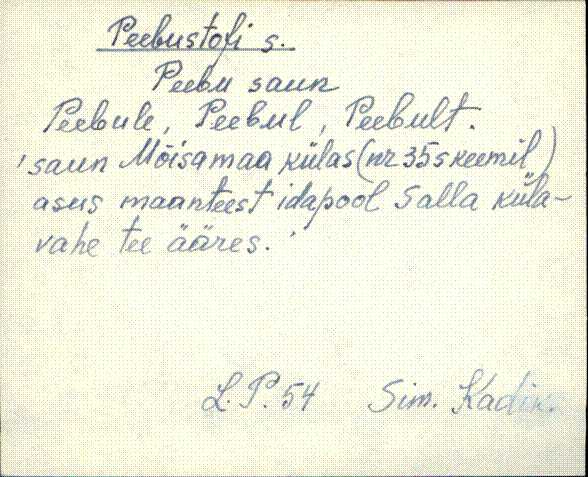 Peebustofi s.
Peebu saun
Peebule, Peebul, Peebult.
'saun Mõisamaa külas (nr 35 skeemil)
asus maanteest idapool Salla küla-
vahe tee ääres.'
L.P. 54 Sim. Kadik.